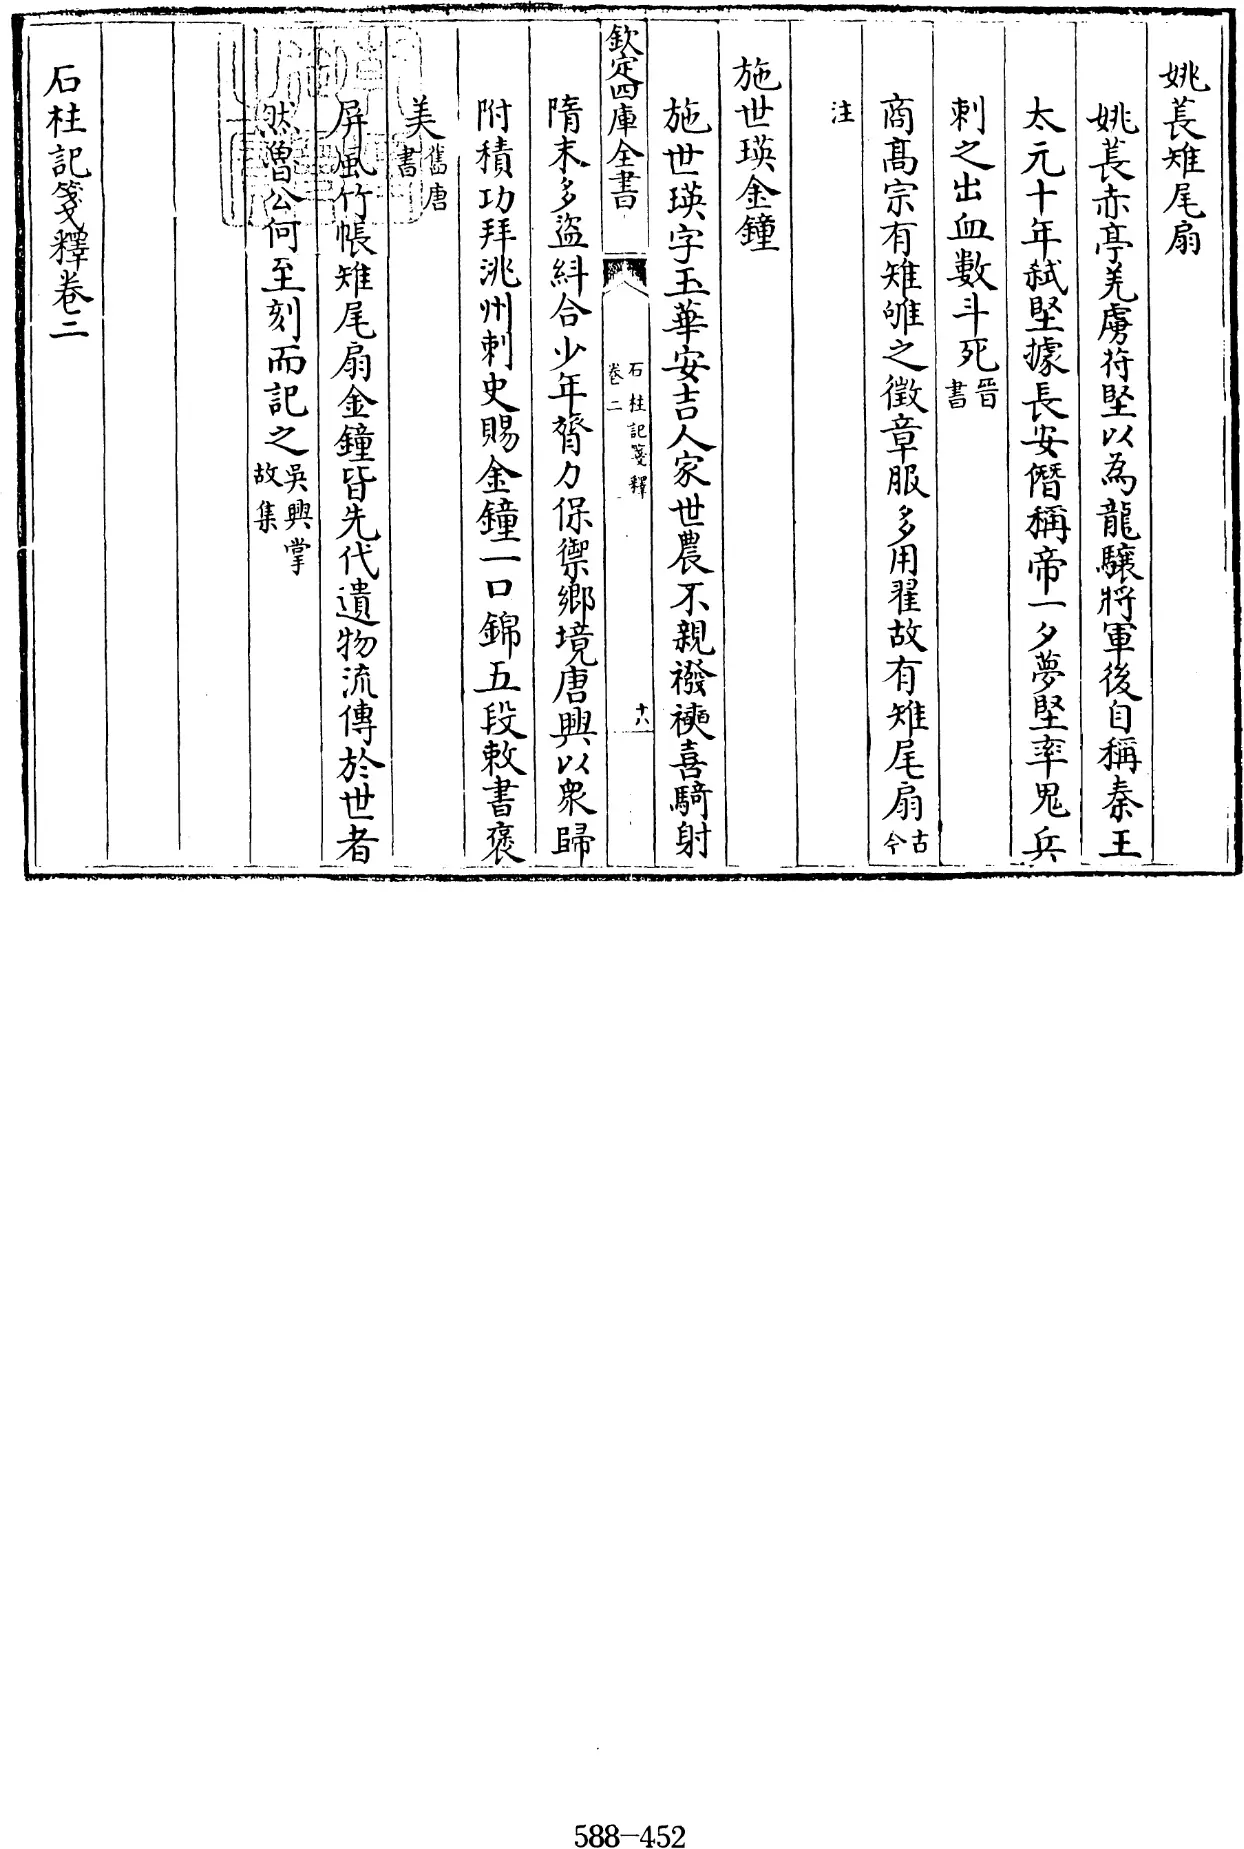 姚萇雉尾扇
姚萇赤亭羌虜苻堅以為龍驤將軍後自稱秦王
太元十年弒堅據長安僭稱帝一夕夢堅率鬼兵
刺之出血數斗死晉書
商髙宗有雉雊之徵章服多用翟故有雉尾扇古今
注
施世瑛金鐘
施世瑛字玉華安吉人家世農不親襏襫喜騎射
欽定四庫全書
石柱記箋釋
卷二
十六
隋末多盜糾合少年膂力保禦鄉境唐興以衆歸
附積功拜洮州刺史賜金鐘一口錦五段敕書褒
美舊唐書
屏風竹帳雉尾扇金鐘皆先代遺物流傳於世者
然魯公何至刻而記之吳興掌故集
石柱記箋釋卷二
588-452